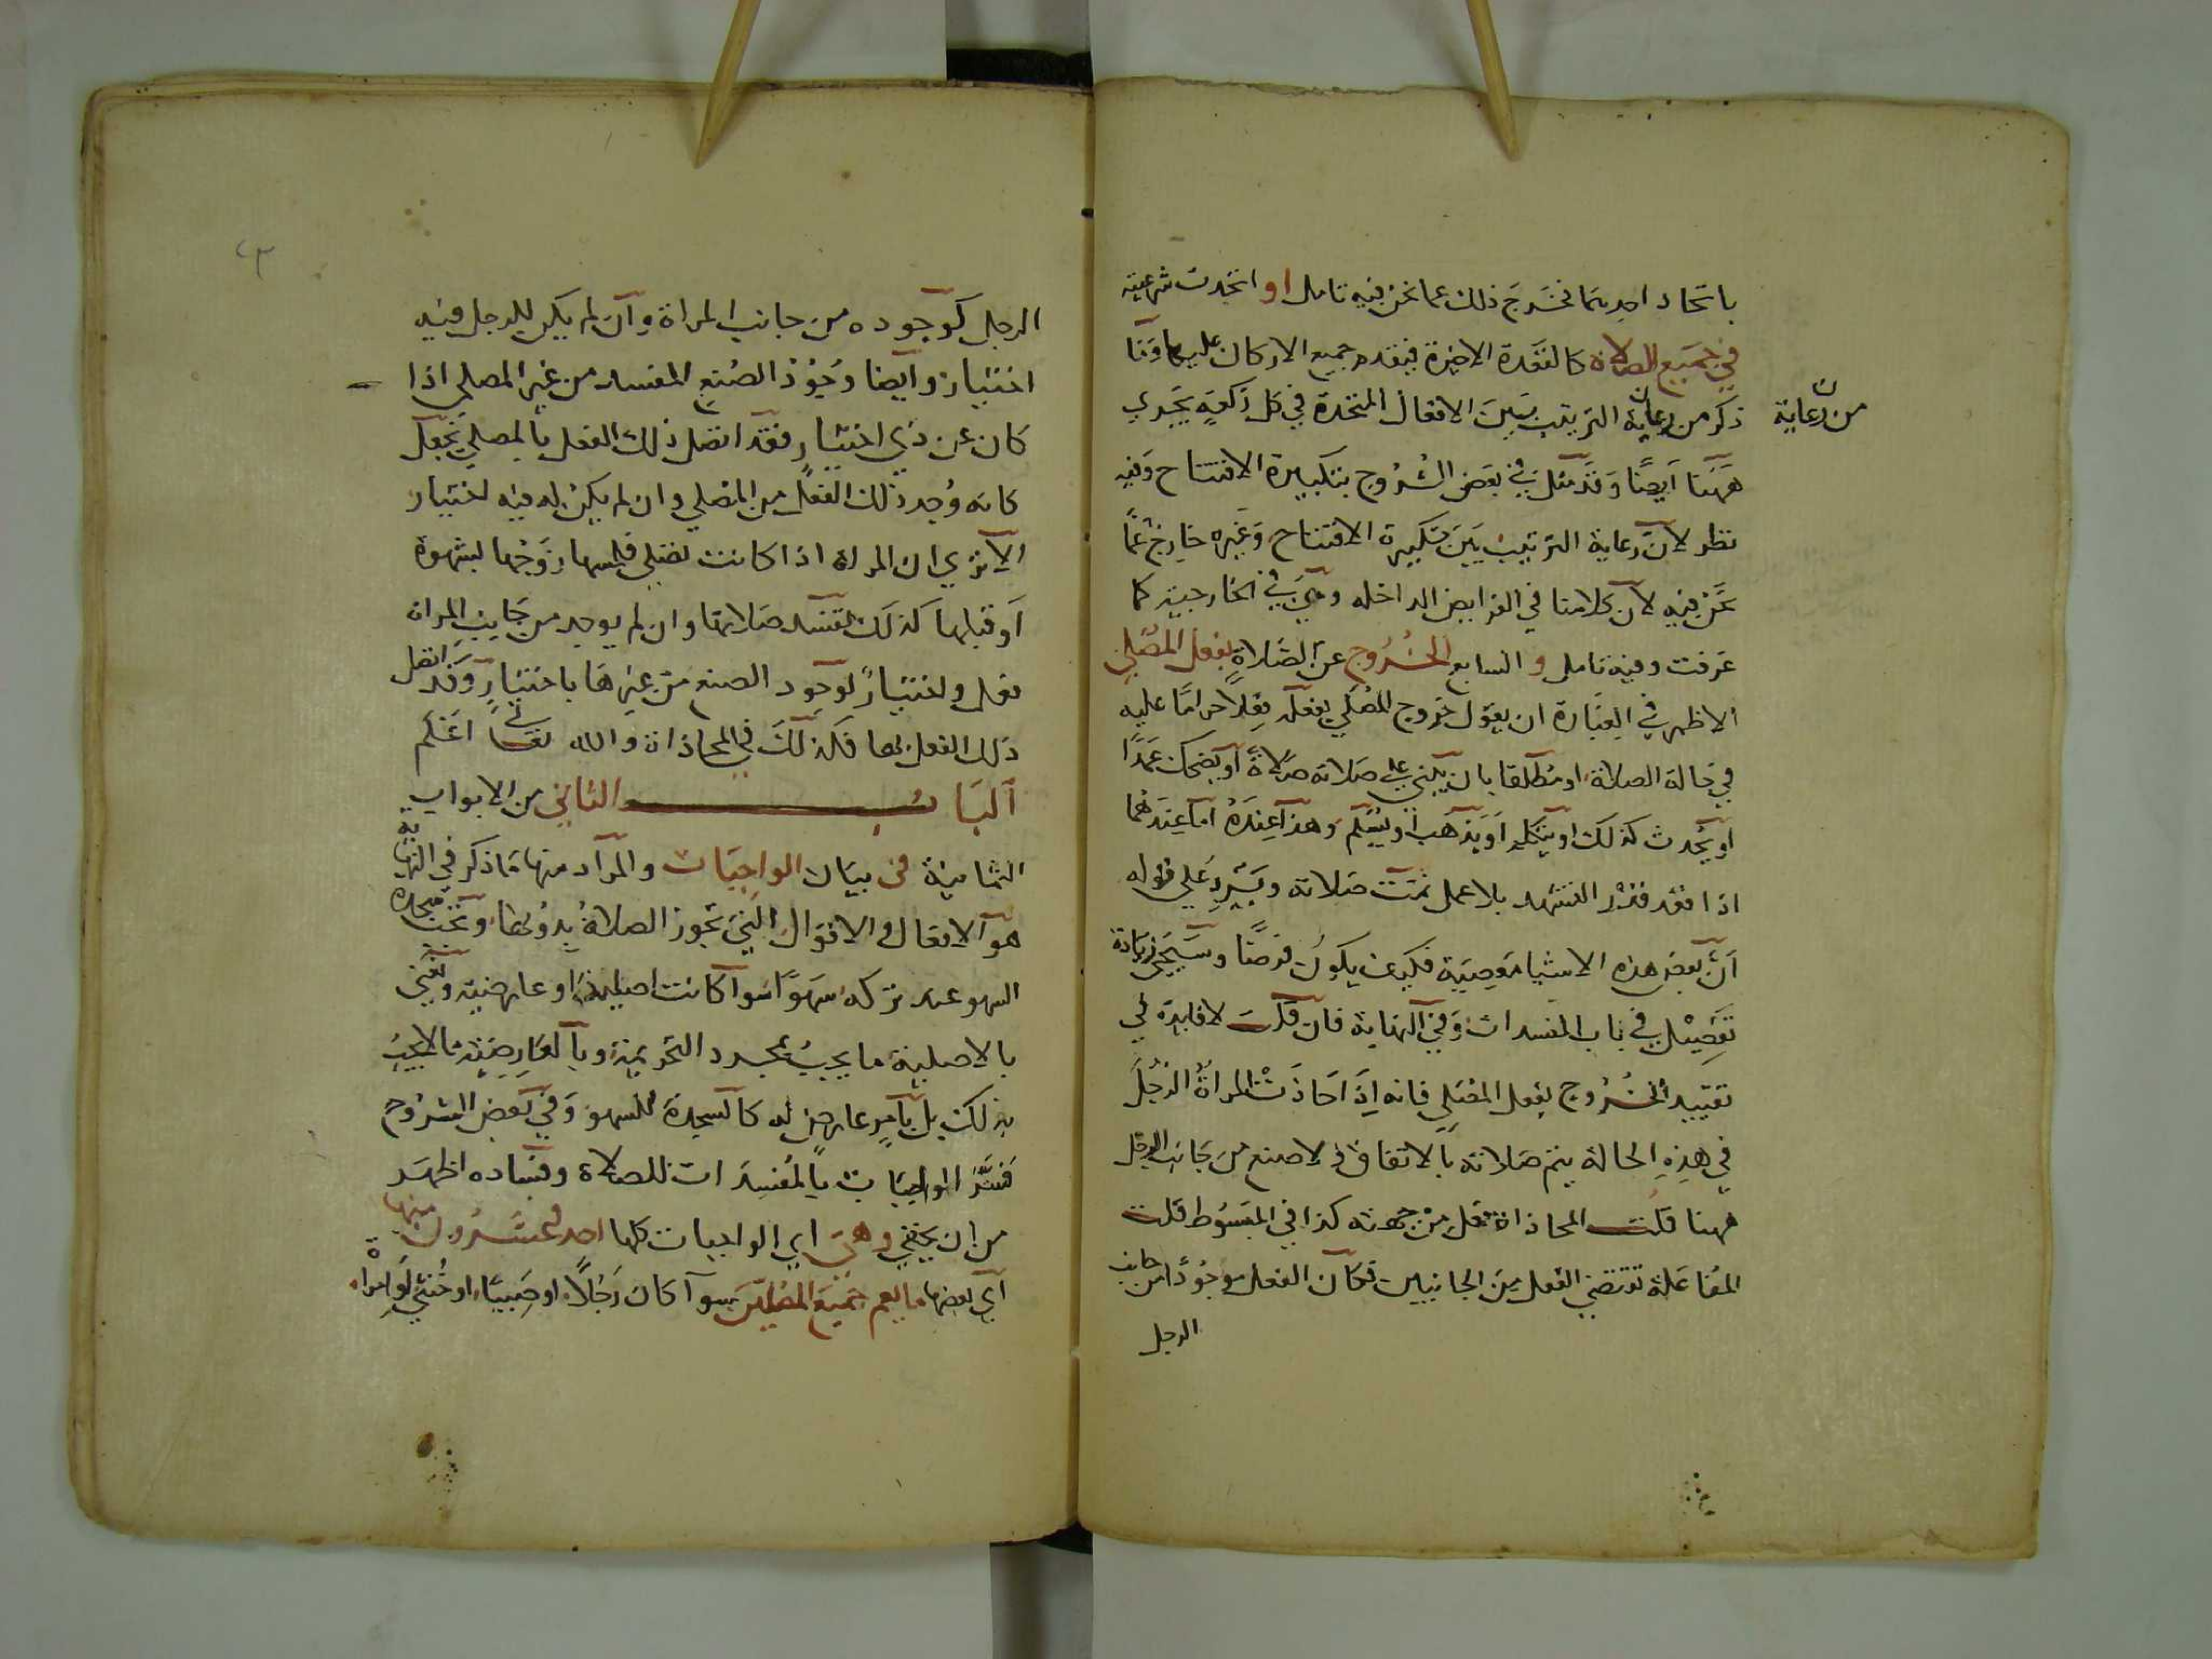 باتحاد احدىهما فخرج ذلك عما نحن فيه تامل او اتحدت شرعيته
في جميع الصلاة كالقعدة الاخيرة فيقدم جميع الاركان عليها وما
ذكر من رعاية الترتيب بين الافعال المتحدة في كل ركعة يجري
من رعاية
ههنا ايضا وقد مثل في بعض الشروح بتكبيرة الافتتاح وفيه
نظر لان رعاية الترتيب بين تكبيرة الافتتاح وغيره خارج عما
نحن فيه لان كلامنا في الفرايض الداخله وهي في الخارجية كما
عرفت وفيه تامل و السابع الخروج عن الصلاة بفعل المصلي
الاظهر في العبارة ان يقول خروج المصلي بفعله فعلا حراما عليه
في حالة الصلاة او مطلقا بان يبني على صلاته صلاة او يضحك عمدا
او يحدث كذلك او يتكلم او يذهب او يسلم وهذا عنده اما عندهما
اذا قعد قدر التشهد بلا عمل تمت صلاته ويرد على قوله
ان بعض هذه الاشيا معصية فكيف يكون فرضا وسيجي زيادة
تفصيل في باب المفسدات وفي النهاية فان قلت لا فايدة في
تقييد الخروج بفعل المصلي فانه اذا حاذت المراة الرجل
في هذه الحالة يتم صلاته بالاتفاق ولا صنع من جانب الرجل
ههنا قلت المحاذاة فعل من جهته كذا في المبسوط قلت
المفاعلة تقتضي الفعل من الجانبين فكان الفعل موجودا من جانب
الرجل
٤٣
الرجل كوجوده من جانب المراة وان لم يكن للرجل فيه
اختيار وايضا وجود الصنع المفسد من غير المصلي اذا
كان عن ذي اختيار فقد اتصل ذلك الفعل بالمصلي فجعل
كانه وجد ذلك الفعل من المصلي وان لم يكن له فيه اختيار
الا ترى ان المراة اذا كانت تصلي فلمسها زوجها بشهوة
او قبلها كذلك تفسد صلاتها وان لم يوجد من جانب المراة
فعل واختيار لوجود الصنع من غيرها باختيار وقد اتصل
ذلك الفعل بها فكذلك في المحاذاة والله تعالى اعلم
الباب الثاني من الابواب
الثمانية في بيان الواجبات والمراد منها ما ذكر في النهاية
هو الافعال والاقوال التي تجوز الصلاة بدونها وتجب سجدة
السهو عند تركه سهوا سوا كانت اصلية او عارضية ونعني
بالاصلية ما يجب بمجرد التحريمة وبالعارضية ما لا يجب
بذلك بل بامر عارض له كالسجدة للسهو وفي بعض الشروح
فسر الواجبات بالمفسدات للصلاة وفساده اظهر
من ان يخفي وهي اي الواجبات كلها احد وعشرون منها
اي بعضها ما يعم جميع المصلين سوا كان رجلا او صبيا او خنثي او امراة